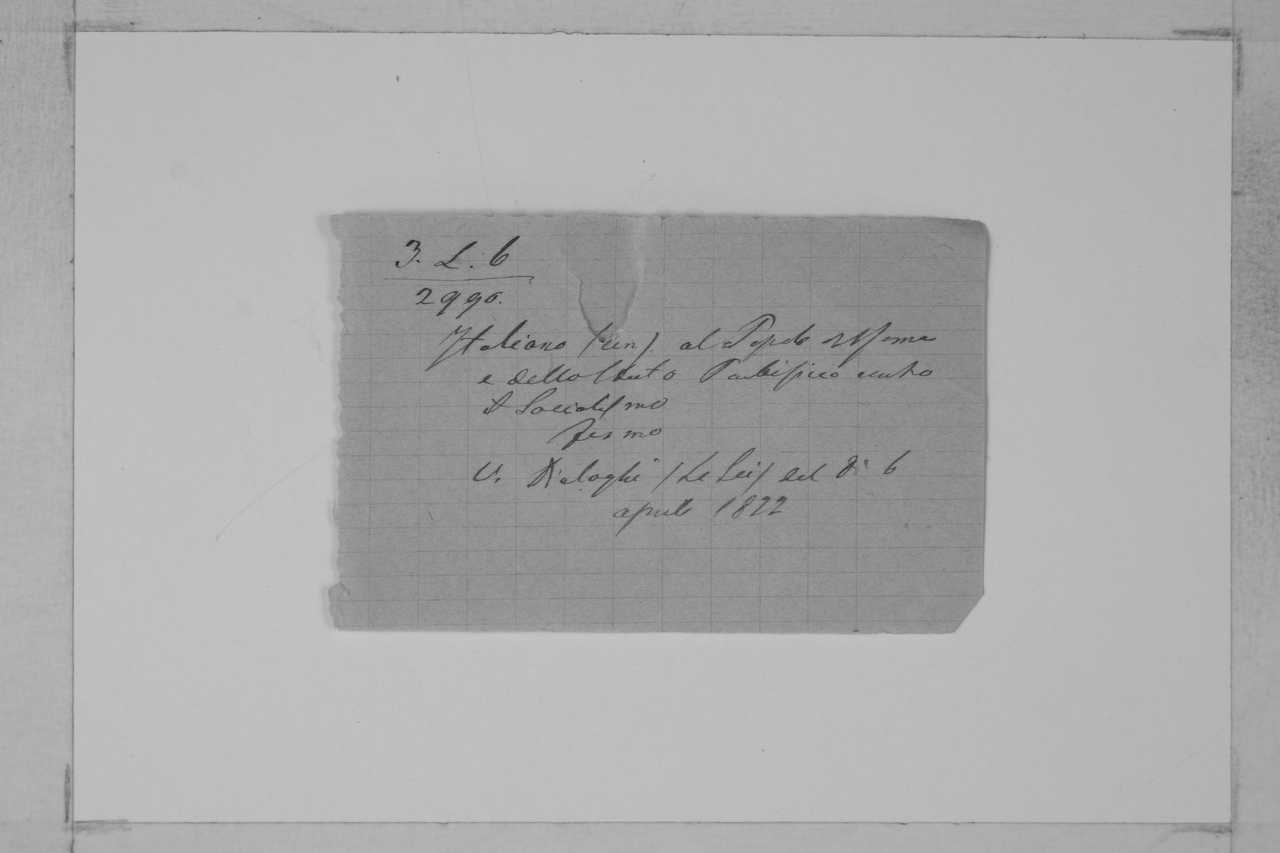 3. L. 6
2990.
Italiano (un) al Popolo di Roma
e dello Stato Pontificio contro
il Socialismo
Fermo
V. Dialoghi (Le Sei) del dì 6
aprile 1822